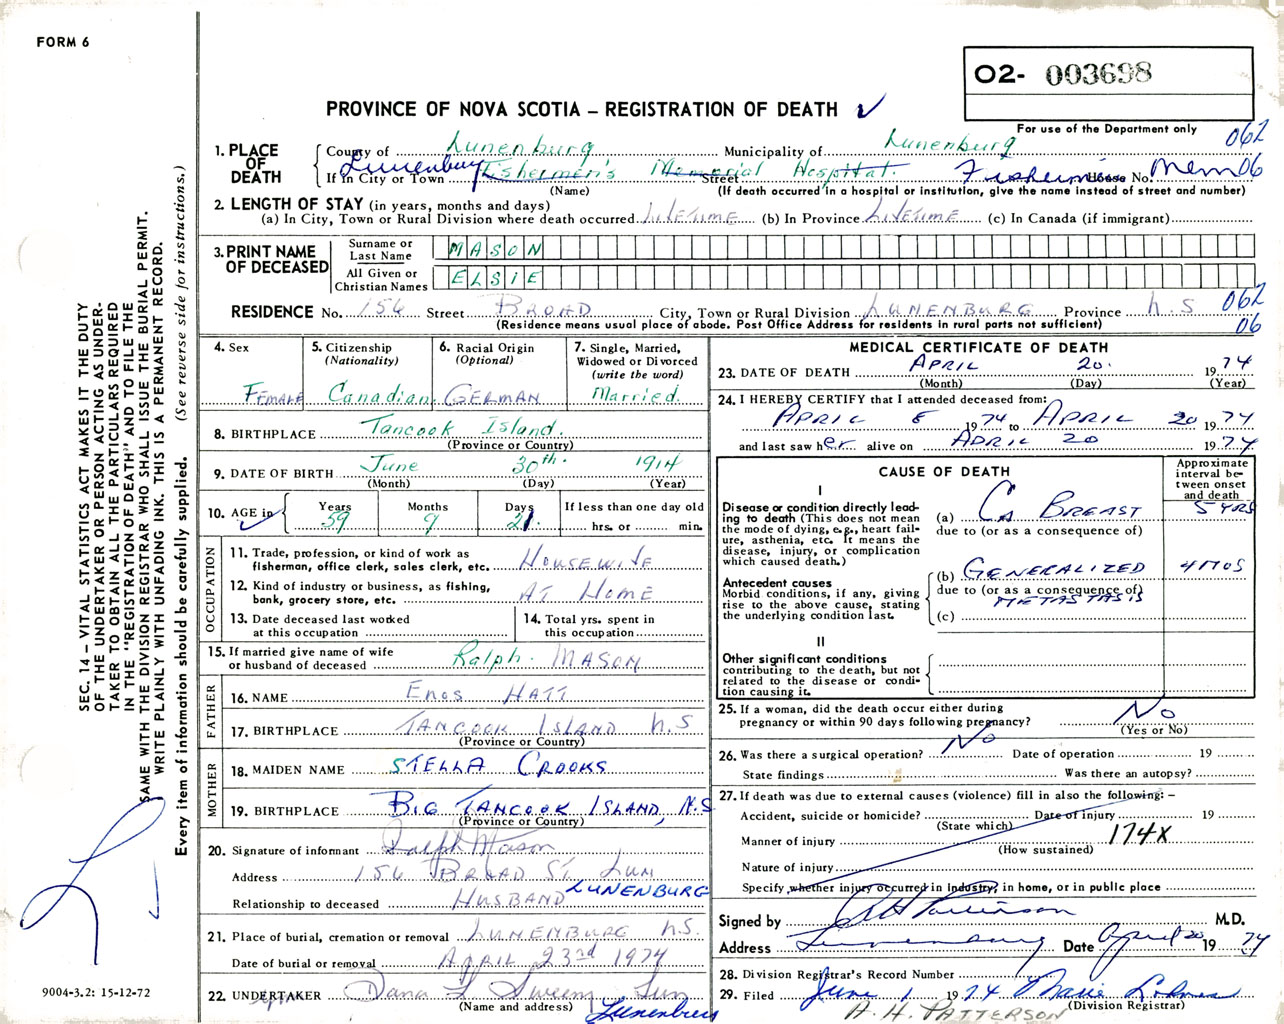 FORM 6
O2- 003698
PROVINCE OF NOVA SCOTIA – REGISTRATION OF DEATH ✓
For use of the Department only
062
1. PLACE OF DEATH
County of Lunenburg Municipality of Lunenburg
If in City or Town Lunenburg Fishermen's Memorial Hospital Street House No. Mem 06
(Name) (If death occurred in a hospital or institution, give the name instead of street and number)
2. LENGTH OF STAY (in years, months and days)
(a) In City, Town or Rural Division where death occurred LIFETIME (b) In Province LIFETIME (c) In Canada (if immigrant)
3. PRINT NAME OF DECEASED
Surname or Last Name MASON
All Given or Christian Names ELSIE
RESIDENCE No. 156 Street BROAD City, Town or Rural Division LUNENBURG Province N.S 062
(Residence means usual place of abode. Post Office Address for residents in rural parts not sufficient) 06
4. Sex Female
5. Citizenship (Nationality) Canadian
6. Racial Origin (Optional) GERMAN
7. Single, Married, Widowed or Divorced (write the word) Married.
8. BIRTHPLACE Tancook Island.
(Province or Country)
9. DATE OF BIRTH June 30th. 1914
(Month) (Day) (Year)
10. AGE in Years 59 Months 9 Days 21
If less than one day old hrs. or min.
OCCUPATION
11. Trade, profession, or kind of work as fisherman, office clerk, sales clerk, etc. HOUSEWIFE
12. Kind of industry or business, as fishing, bank, grocery store, etc. AT HOME
13. Date deceased last worked at this occupation
14. Total yrs. spent in this occupation
15. If married give name of wife or husband of deceased Ralph. MASON
FATHER
16. NAME Enos HATT
17. BIRTHPLACE TANCOOK ISLAND N.S
(Province or Country)
MOTHER
18. MAIDEN NAME STELLA CROOKS
19. BIRTHPLACE BIG TANCOOK ISLAND, N.S
(Province or Country)
20. Signature of informant Ralph Mason
Address 156 BROAD ST. LUN LUNENBURG
Relationship to deceased HUSBAND
21. Place of burial, cremation or removal LUNENBURG N.S.
Date of burial or removal APRIL 23rd 1974
22. UNDERTAKER Dana L Sweeny Lun
(Name and address) Lunenburg
MEDICAL CERTIFICATE OF DEATH
23. DATE OF DEATH APRIL 20. 1974
(Month) (Day) (Year)
24. I HEREBY CERTIFY that I attended deceased from:
APRIL 8 1974 to APRIL 20 1974
and last saw her alive on APRIL 20 1974
CAUSE OF DEATH
Approximate interval between onset and death
I
Disease or condition directly leading to death (This does not mean the mode of dying, e.g., heart failure, asthenia, etc. It means the disease, injury, or complication which caused death.)
(a) Ca BREAST 5 YRS
due to (or as a consequence of)
Antecedent causes
Morbid conditions, if any, giving rise to the above cause, stating the underlying condition last.
(b) GENERALIZED 4 MOS
due to (or as a consequence of)
METASTASIS
(c)
II
Other significant conditions
contributing to the death, but not related to the disease or condition causing it.
25. If a woman, did the death occur either during pregnancy or within 90 days following pregnancy? No
(Yes or No)
26. Was there a surgical operation? No Date of operation 19
State findings Was there an autopsy?
27. If death was due to external causes (violence) fill in also the following: –
Accident, suicide or homicide? Date of injury 19
(State which)
Manner of injury 174X
(How sustained)
Nature of injury
Specify whether injury occurred in industry, in home, or in public place
Signed by A H Patterson M.D.
Address Lunenburg Date April 20 1974
28. Division Registrar's Record Number
29. Filed June 1 1974 Marie
(Division Registrar)
A. H. PATTERSON
SEC. 14 – VITAL STATISTICS ACT MAKES IT THE DUTY
OF THE UNDERTAKER OR PERSON ACTING AS UNDER-
TAKER TO OBTAIN ALL THE PARTICULARS REQUIRED
IN THE "REGISTRATION OF DEATH" AND TO FILE THE
SAME WITH THE DIVISION REGISTRAR WHO SHALL ISSUE THE BURIAL PERMIT.
WRITE PLAINLY WITH UNFADING INK. THIS IS A PERMANENT RECORD.
Every item of information should be carefully supplied. (See reverse side for instructions.)
9004-3.2: 15-12-72